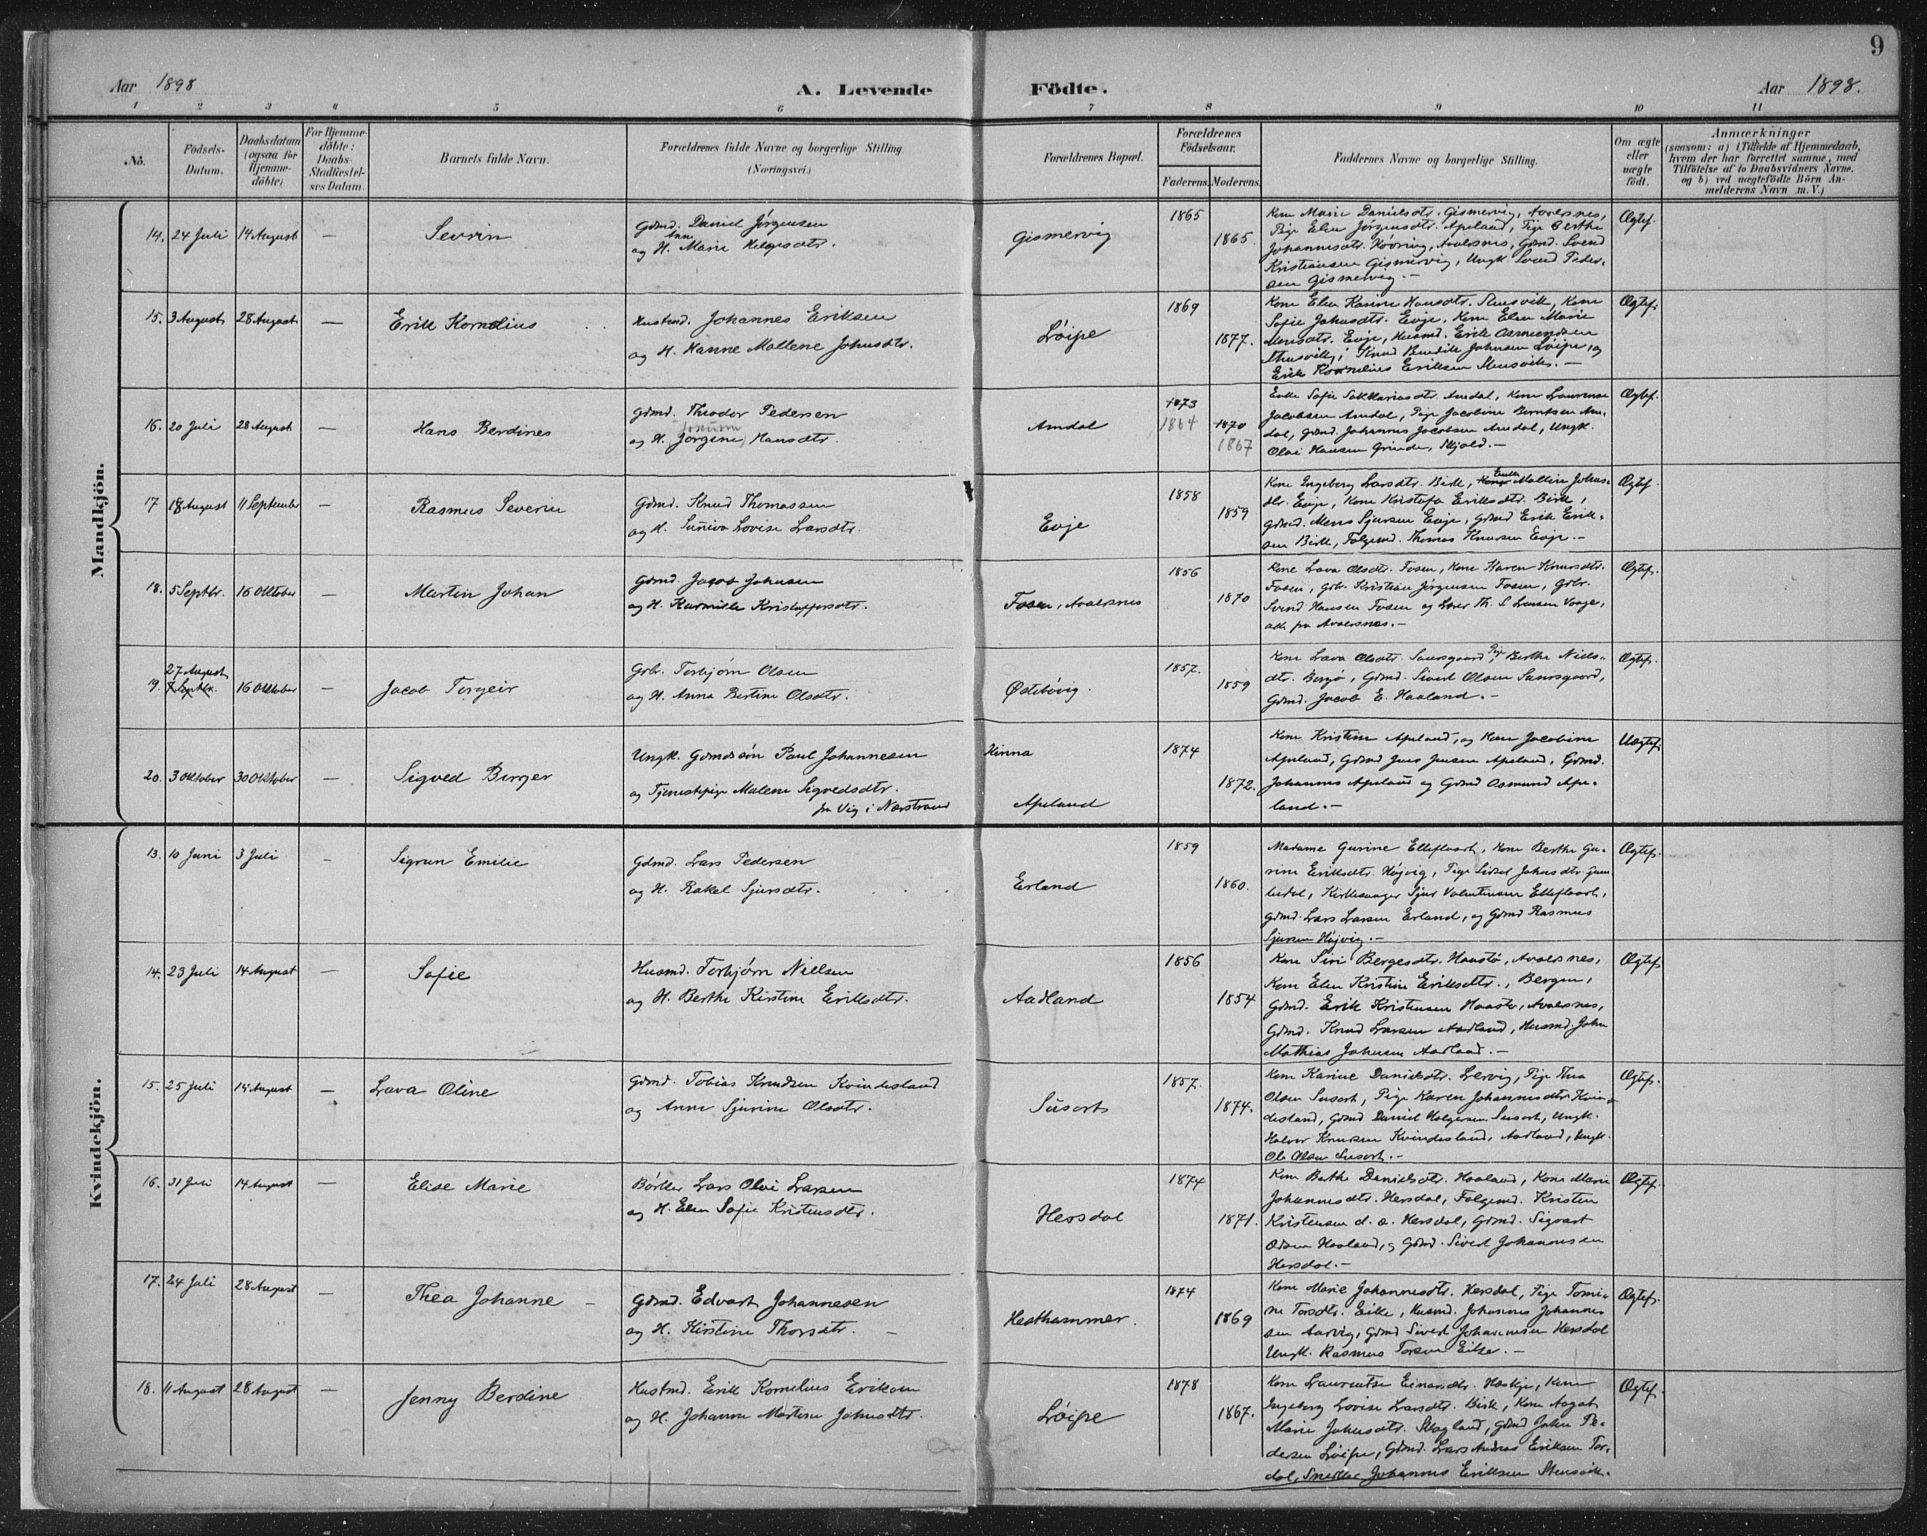 9
Aar 1898
A. Levende Födte.
Aar 1898.
1 2 3 4 5 6 7 8 9 10 11
No.
Födsels-Datum.
Daabsdatum (ogsaa for Hjemmedöbte)
For Hjemmedöbte: Daabs-Stadfæstelses Datum.
Barnets fulde Navn.
Forældrenes fulde Navne og borgerlige Stilling. (Næringsvei.)
Forældrenes Bopæl.
Forældrenes Födselsaar.
Faderens. Moderens.
Faddernes Navne og borgerlige Stilling.
Om ægte eller uægte födt.
Anmærkninger
(saasom: a) i Tilfælde af Hjemmedaab, hvem der har forrettet samme, med Tilföielse af to Daabsvidners Navne, og b) ved uægtefödte Börn Anmelderens Navn m. V.)
Mandkjön.
14. 24 Juli 14 August — Severin
Gdmd. Daniel Jørgensen
og H. Anne Marie Helgesdtr.
Gismervig
1865 1865.
Kone Marie Danielsdtr. Gismervig, Avalsnes,
Pige Elen Jørgensdtr. Apeland, Pige Berthe
Johannesdtr. Høvring, Avalsnes, Gdmd. Svend
Kristiansen Gismervig, Ungk. Svend Peder-
sen Gismervig.—
Ægtef.
15. 3 August 28 August — Erik Kornelius
Husmd. Johannes Eriksen
og H. Hanne Mallene Johnsdtr.
Løipe
1869 1877.
Kone Elen Karine Hansdtr. Stensvik, Kone
Sofie Johnsdtr. Evje, Kone Elen Marie
Monsdtr. Evje, Husmd. Erik Osmundsen
Stensvik, Knud Benedik Johnsen Løipe, og
Erik Kornelius Eriksen Stensvik.—
Ægtef.
16. 20 Juli 28 August — Hans Berdines
Gdmd. Theodor Pedersen
og H. Jørgene Hansdtr.
Amdal
1873 1864 1870 1867
Enke Sofie Sakkariasdtr. Amdal, Kone Laurense
Jacobsen Amdal, Pige Jacobine Berntsen Am-
dal, Gdmd. Johannes Jacobsen Amdal, Ungk.
Olai Hansen Grinde, Skjold.—
Ægtef.
17 18 August 11 September — Rasmus Severin
Gdmd. Knud Thomassen
og H. Suneva Lovise Larsdtr.
Evje
1858 1859
Kone Ingeborg Larsdtr. Birk, Enke Mallin Johns-
dtr. Evje, Kone Kristofa Eriksdtr. Birk,
Gdmd. Mons Sjursen Evje, Gdmd Erik Erik-
sen Birk, Folgemd. Thomas Knutsen Evje.—
Ægtef.
18. 5 Septbr. 16 Oktober — Martin Johan
Gdmd. Jacob Johnsen
og H. Karmilla Kristoffersdtr.
Fosen, Avalsnes
1856 1870
Kone Lava Olsdtr. Fosen, Kone Karen Knutsdtr.
Fosen, Grbr. Kristian Jørgensen Fosen, Grbr.
Svend Hansen Fosen og Lærer Th. S. Larsen Vaage,
alle fra Avalsnes.—
Ægtef.
19. 27 August 7 Septbr. 16 Oktober — Jacob Torgeir
Grbr. Torbjørn Olsen
og H. Anna Bertine Olsdtr.
Østebøvig
1857. 1859
Kone Lava Olsdtr. Sunsgaard, Pige Berthe Niels-
dtr. Borgø, Gdmd. Sivert Olsen Sunsgaard,
Gdmd. Jacob E. Haaland.—
Ægtef.
20. 3 Oktober 30 Oktober — Sigved Birger
Ungk. Gdmdsøn Paul Johannesen
og Tjenestepige Malene Sigvedsdtr.
fra Vig i Nærstrand
Hinna
Apeland
1874 1872.
Kone Kristine Apeland, og Kone Jacobine
Apeland, Gdmd Jens Jensen Apeland, Gdmd.
Johannes Apeland og Gdmd Osmund Ape-
land.—
Uægtef.
Kvindekjön.
13. 10 Juni 3 Juli — Sigrun Emilie
Gdmd. Lars Pedersen
og H. Rakel Sjursdtr.
Erland
1859 1860.
Madame Gurine Elleflaadt, Kone Berthe Gu-
rine Eriksdtr. Højvig, Pige Sidsel Johnsdtr.
Kirkesanger Sjur Valentinsen Elleflaadt,
Gdmd. Lars Larsen Erland, og Gdmd Rasmus
Sjursen Højvig.—
Ægtef.
14. 23 Juli 14 August — Sofie
Husmd. Torbjørn Nielsen
og H. Berthe Kirstine Eriksdtr.
Aadland
1856 1854
Kone Siri Bergesdtr. Haastø, Avalsnes,
Kone Elen Kristine Eriksdtr., Bergen,
Gdmd. Erik Kristensen Haastø, Avalsnes,
Gdmd. Knud Larsen Aadland, Husmd. John
Mathias Johnsen Aadland.—
Ægtef
15. 25 Juli 14 August — Lava Oline
Gdmd. Tobias Knudsen Kvindesland
og Anne Sjurine Olsdtr.
Susort
1857. 1874.
Kone Karine Danielsdtr. Lervig, Pige Thea
Olsen Susort, Pige Karen Johannesdtr. Kvin-
desland, Gdmd Daniel Helgesen Susort, Ungk.
Halvor Knutsen Kvindesland, Aadland, Ungk.
Ole Olsen Susort.—
Ægtef.
16. 31 Juli 14 August — Elise Marie
Bødker Lars Olai Larsen
og H. Elen Sofie Kristensdtr.
Hersdal
1874 1871.
Kone Berthe Danielsdtr. Haaland, Kone Marie
Johannesdtr. Hersdal, Folgemd. Kristen
Kristensen d. æ. Hersdal, Gdmd. Sigvart
Odsen Haaland, og Gdmd. Sivert Johannessen
Hersdal.—
Ægtef.
17. 24 Juli 28 August — Thea Johanne —
Gdmd. Edvart Johannesen
og H. Kirstine Thorsdtr. —
Hesthammer.
1874 1869
Kone Marie Johannesdtr. Hersdal, Pige Tomi-
ne Torsdtr. Eike, Husmd. Johannes Johannes-
sen Aarvig, Gdmd Sivert Johannessen Hersdal
Ungk. Rasmus Torsen Eike.—
Ægtef.
18. 11 August 28 August — Jenny Berdine
Husmd. Erik Kornelius Eriksen
og H. Johanne Martine Johnsdtr.
Løipe
1878 1867.
Kone Laurentse Einarsdtr. Haskje, Kone
Ingeborg Lovise Larsdtr. Birk, Kone Aagot
Marie Johnsdtr. Skogland, Gdmd John Pe-
dersen Løipe, Gdmd. Lars Andreas Eriksen Tor-
dal, Snedker Johannes Eriksen Stensvik.
Ægtef.